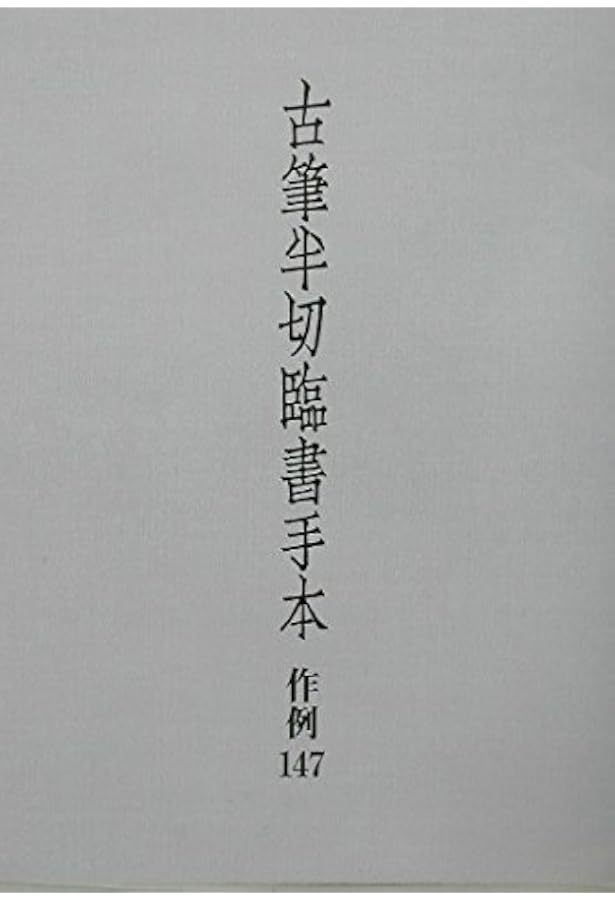 古筆半切臨書手本 作例147